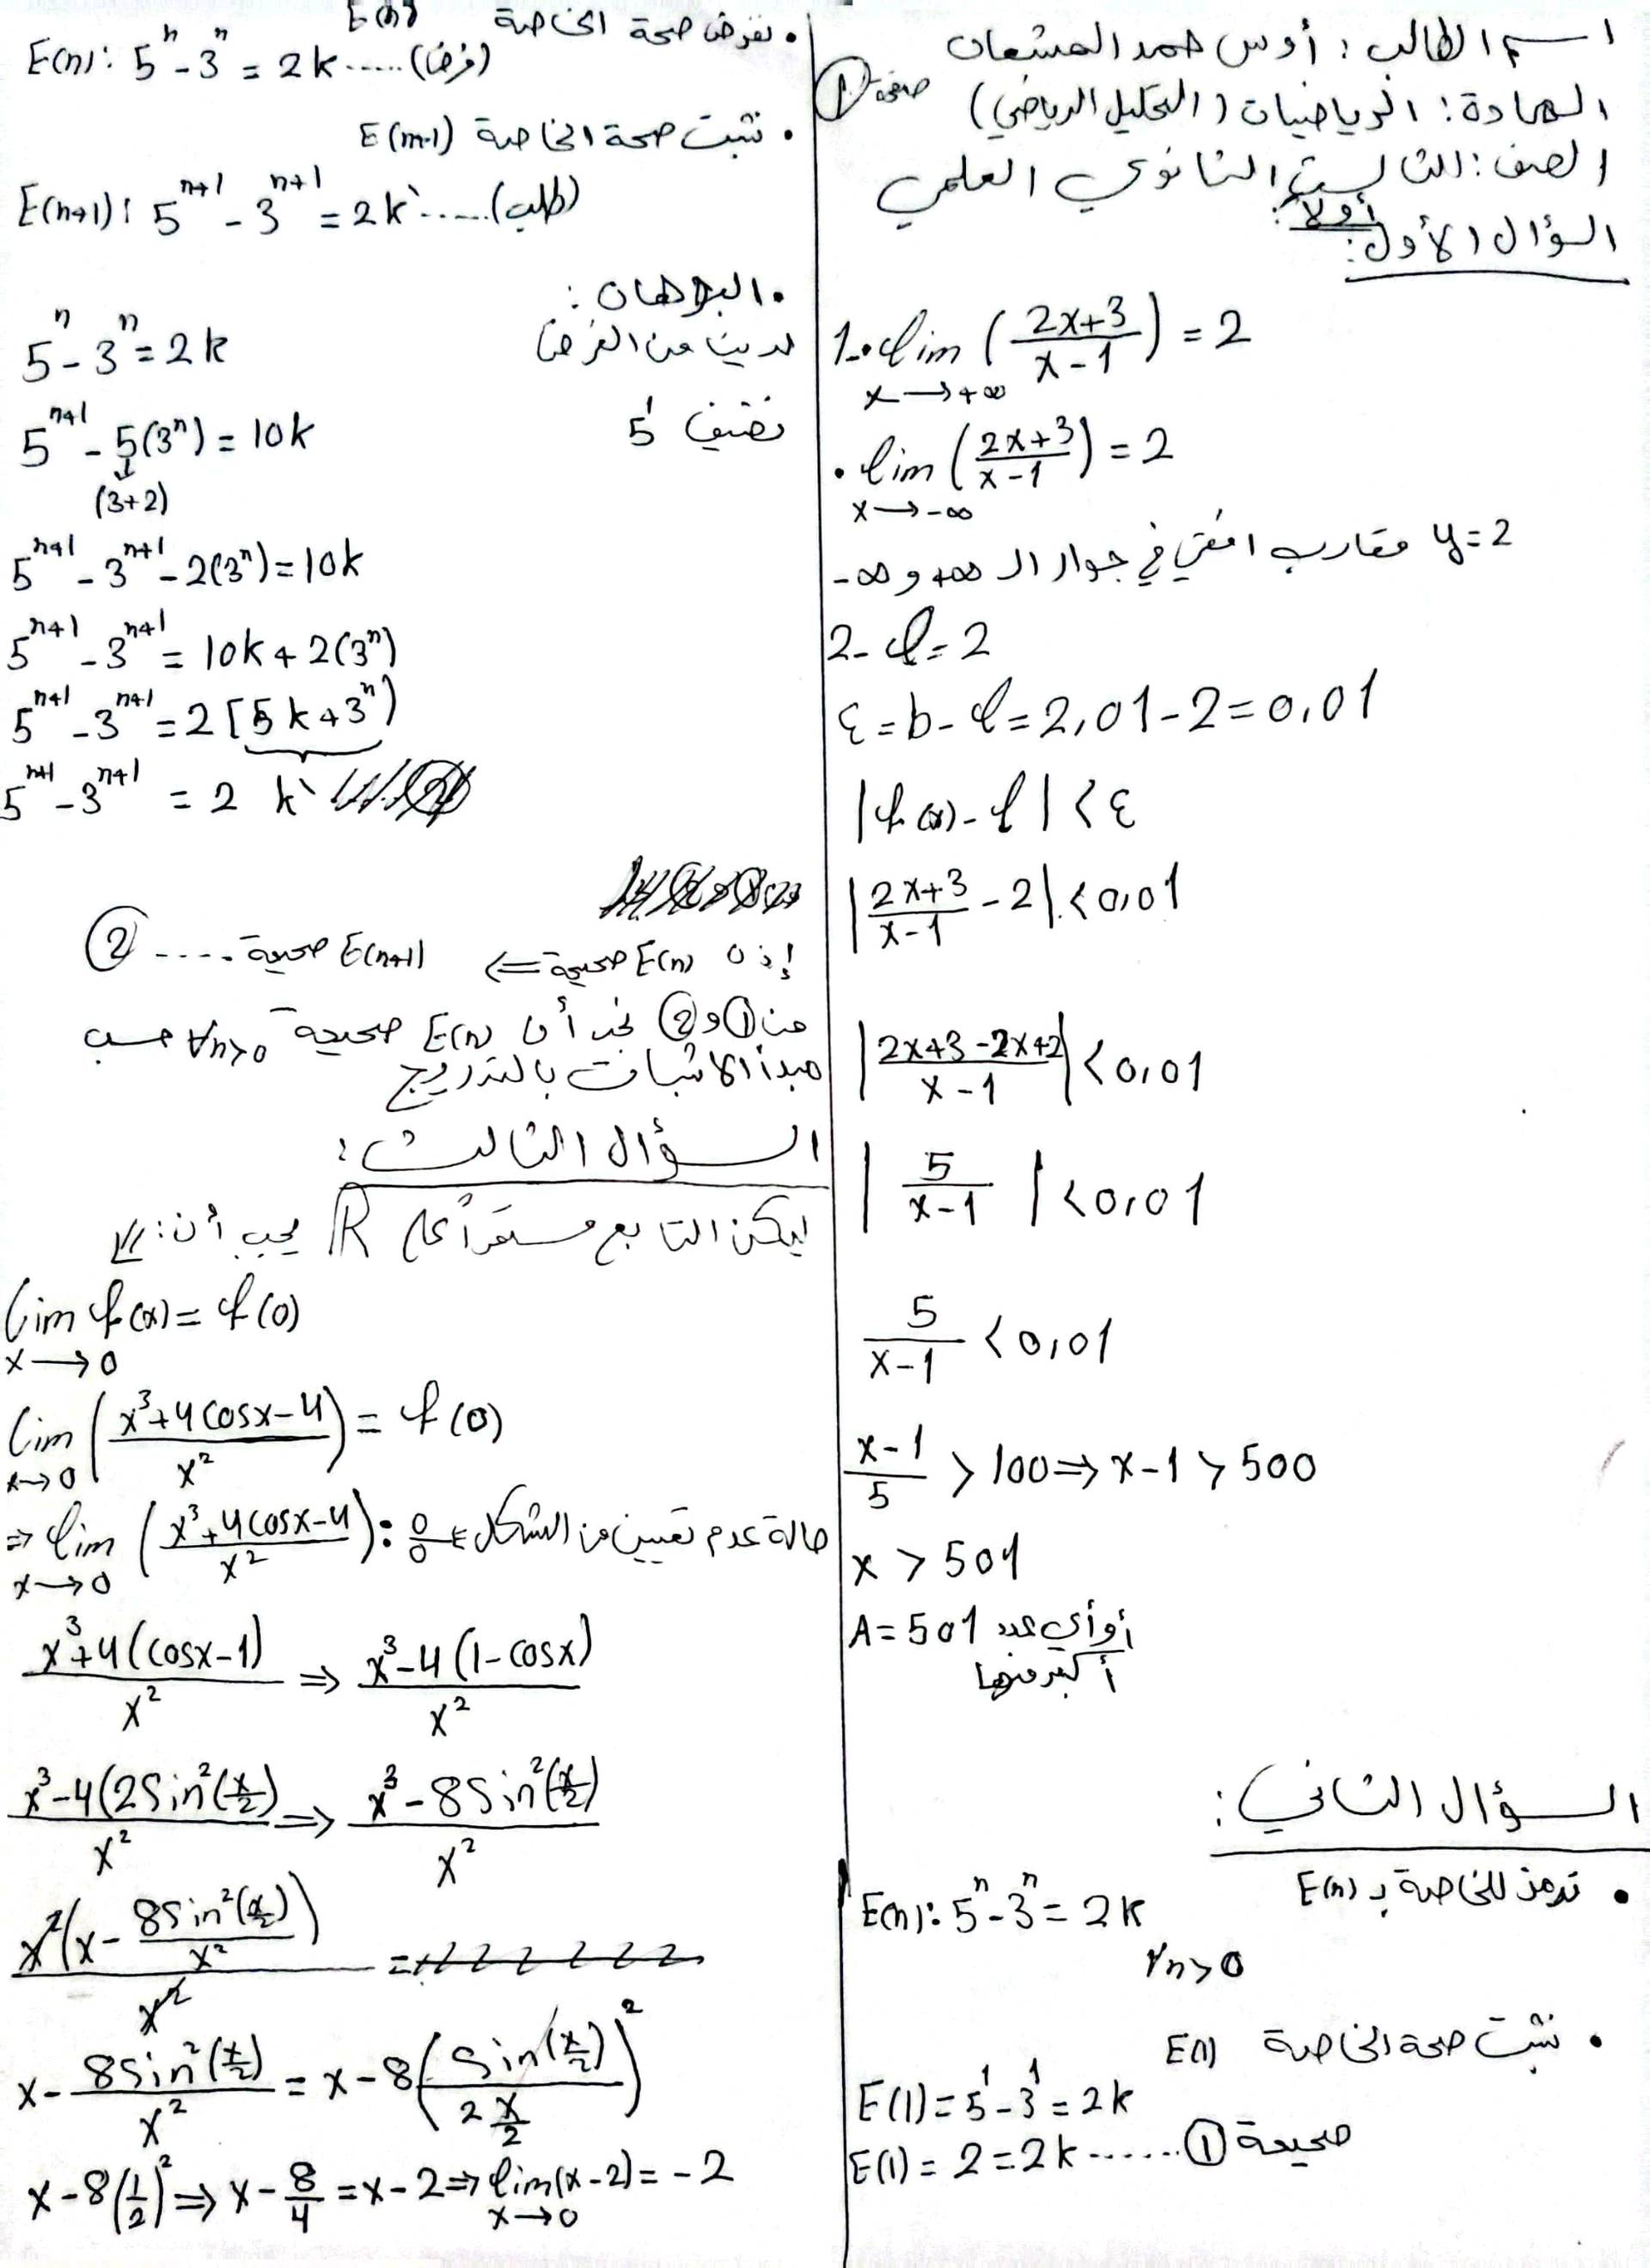 اسم الطالب: أوس حمد المشعان
صفحة ①
المادة: الرياضيات (التحليل الرياضي)
الصف: الثالث الثانوي العلمي
أولاً:
السؤال الأول:
1. lim x→+∞ (2x+3 / x-1) = 2
. lim x→-∞ (2x+3 / x-1) = 2
y=2 مقارب افقي في جوار الـ +∞ و -∞
2- ℓ=2
ε = b-ℓ = 2,01-2 = 0,01
|f(x)-ℓ| < ε
|2x+3 / x-1 - 2| < 0,01
|2x+3-2x+2 / x-1| < 0,01
|5 / x-1| < 0,01
5 / x-1 < 0,01
x-1 / 5 > 100 ⇒ x-1 > 500
x > 501
A=501 أو أي عدد
أكبر منها
السؤال الثاني:
• نرمز للخاصة بـ E(n)
E(n): 5^n - 3^n = 2k
∀n>0
• نثبت صحة الخاصة E(1)
E(1) = 5^1 - 3^1 = 2k
E(1) = 2 = 2k ...... ① صحيحة
• نفرض صحة الخاصة E(n)
E(n): 5^n - 3^n = 2k ..... (فرض)
• نثبت صحة الخاصة E(n+1)
E(n+1): 5^{n+1} - 3^{n+1} = 2k` ..... (طلب)
• البرهان:
لدينا من الفرض 5^n - 3^n = 2k
نضرب بـ 5 5^{n+1} - 5(3^n) = 10k
(3+2)
5^{n+1} - 3^{n+1} - 2(3^n) = 10k
5^{n+1} - 3^{n+1} = 10k + 2(3^n)
5^{n+1} - 3^{n+1} = 2[5k + 3^n)
5^{n+1} - 3^{n+1} = 2 k`
إذن E(n) صحيحة ⇐ E(n+1) صحيحة ..... ②
من ① و ② نجد أن E(n) صحيحة ∀n>0 حسب
مبدأ الاثبات بالتدريج
السؤال الثالث:
ليكن التابع مستمراً على R يجب أن:
lim x→0 f(x) = f(0)
lim x→0 (x^3+4cosx-4 / x^2) = f(0)
⇒ lim x→0 (x^3+4cosx-4 / x^2): 0/0 حالة عدم تعيين من الشكل
x^3+4(cosx-1) / x^2 ⇒ x^3-4(1-cosx) / x^2
x^3-4(2sin^2(x/2) / x^2 ⇒ x^3-8sin^2(x/2) / x^2
x^2(x - 8sin^2(x/2) / x^2) / x^2 =
x - 8sin^2(x/2) / x^2 = x-8(sin(x/2) / 2 x/2)^2
x-8(1/2)^2 ⇒ x - 8/4 = x-2 ⇒ lim x→0 (x-2) = -2